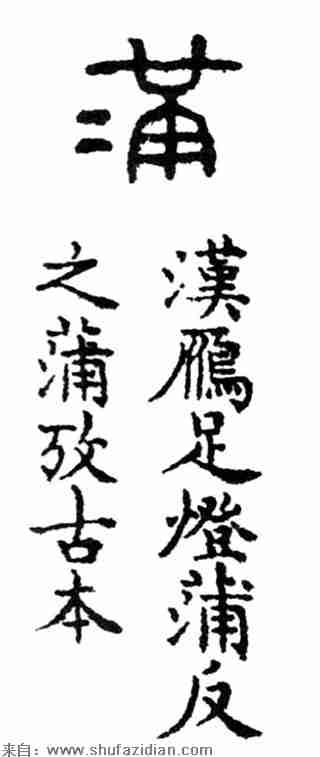 蒲
漢鴈足燈蒲反
之蒲攷古本
来自：www.shufazidian.com